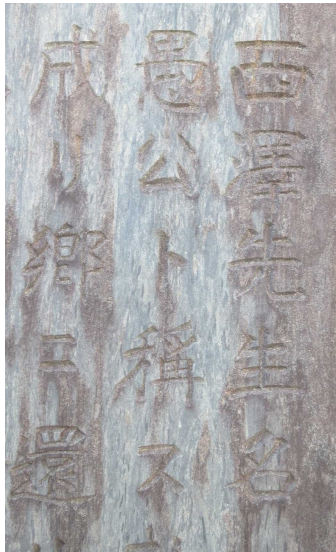 西澤先生名
愚公ト稱ス
成リ郷ニ還